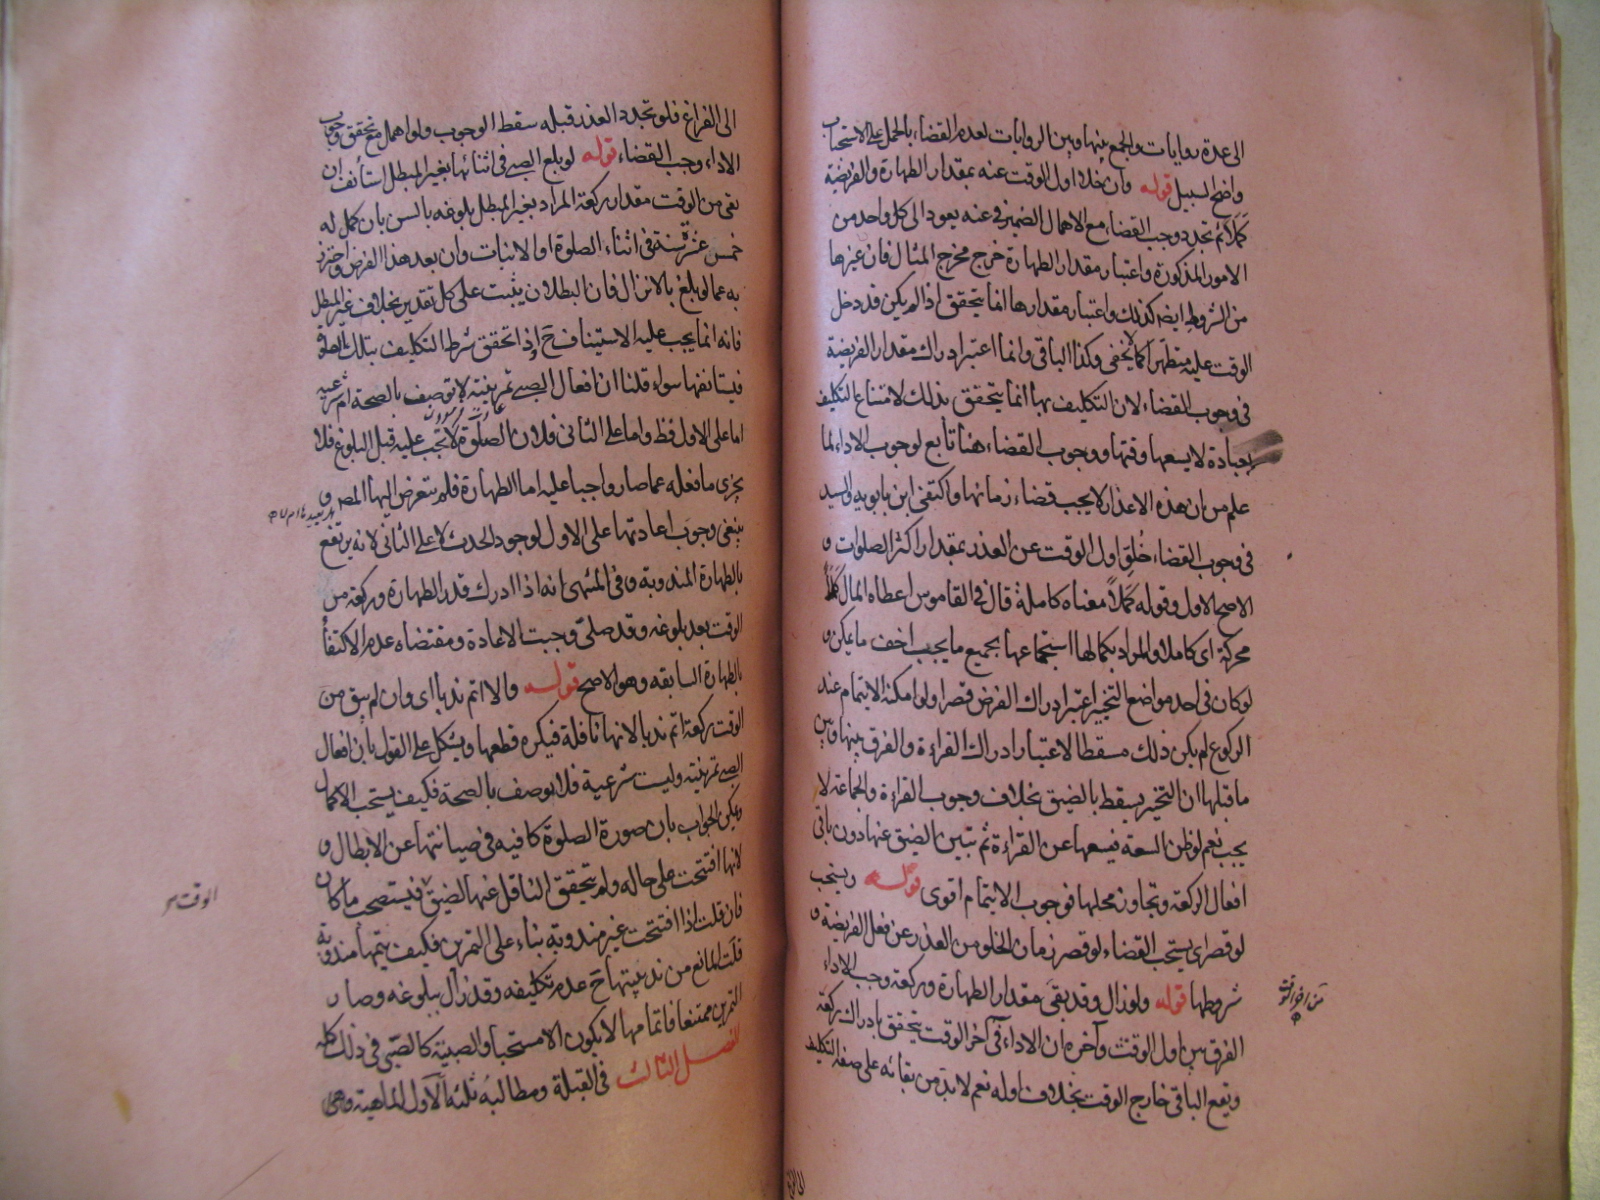 الى عدة روايات والجمع بينها وبين الروايات لعدم القضاء بالحمل على الاستحباب
واضح السبيل قوله وان خلا اول الوقت عنه بمقدار الطهارة والفريضة
كملا ثم تجدد وجب القضاء مع الاهمال الضمير في عنه يعود الى كل واحد من
الامور المذكورة واعتبار مقدار الطهارة خرج مخرج المثال فان غيرها
من الشروط ايضه كذلك واعتبار مقدارها انما يتحقق اذا لم يكن قد دخل
الوقت عليه متطهرا كما لا يخفى وكذا الباقي وانما اعتبر ادراك مقدار الفريضة
في وجوب القضاء لان التكليف بها انما يتحقق بذلك لامتناع التكليف
بعبادة لا يسعها وقتها ووجوب القضاء هنا تابع لوجوب الاداء لما
علم من ان هذه الاعذار لا يجب قضاء زمانها واكتفى ابن بابويه والسيد
في وجوب القضاء خلو اول الوقت عن العذر بمقدار اكثر الصلوات و
الاصح الاول وقوله كملا معناه كاملة قال في القاموس اعطاه المال كملا
محركة اى كاملا والمراد بكمالها استجماعها بجميع ما يجب اخف ما يمكن و
لو كان في احد مواضع التخيير اعتبر ادراك الفرض قصرا ولو امكنه الاتمام عند
الركوع لم يكن ذلك مسقطا لاعتبار ادراك القراءة والفرق بينها وبين
ما قبلها ان التخيير يسقط بالضيق بخلاف وجوب القراءة والجماعة لا
يجب نعم لو ظن السعة فيسعها عن القراءة ثم تبين الضيق عنها دون باقى
افعال الركعة وتجاوز محلها فوجوب الاتمام اقوى قوله ويستحب
لو قصر اى يستحب القضاء لو قصر زمان الخلو من العذر عن فعل الفريضة و
شروطها قوله ولو زال وقد بقى مقدار الطهارة وركعة وجب الاداء
من اخر الوقت
الفرق بين اول الوقت وآخره ان الاداء في آخر الوقت يتحقق بادراك ركعة
ويقع الباقي خارج الوقت بخلاف اوله نعم لا بد من بقائه على صفة التكليف
الى الفراغ فلو تجدد العذر قبله سقط الوجوب ولو اهمل مع تحقق وجوب
الاداء وجب القضاء قوله لو بلغ الصبي في اثنائها بغير المبطل استأنف ان
بقى من الوقت مقدار ركعة المراد بغير المبطل بلوغه بالسن بان كمل له
خمس عشرة سنة في اثناء الصلوة او الانبات وان بعد هذا الفرض واحترز
به عما لو بلغ بالانزال فان البطلان يثبت على كل تقدير بخلاف غير المبطل
فانه انما يجب عليه الاستيناف ح إذا تحقق شرط التكليف بتلك الصلوة
فيستانفها سواء قلنا ان افعال الصبي تمرينية لا توصف بالصحة ام شرعية
اما على الاول فظ واما على الثاني فلان الصلوة لا تجب عليه قبل البلوغ فلا
يجزى ما فعله عما صار واجبا عليه اما الطهارة فلم يتعرض اليها المص و
ينبغى وجوب اعادتها على الاول لوجود الحدث لا على الثاني لانه يرتفع
بالطهارة المندوبة وفي المنتهى انه اذا ادرك قدر الطهارة وركعة من
الوقت بعد بلوغه وقد صلى وجبت الاعادة ومقتضاه عدم الاكتفاء
بالطهارة السابقه وهو الاصح قوله والا اتم ندبا اى وان لم يبق من
الوقت ركعة اتم ندبا لانها نافلة فيكره قطعها ويشكل على القول بان افعال
الصبي تمرينية وليت شرعية فلا توصف بالصحة فكيف يستحب الاكمال
ويمكن الجواب بان صورة الصلوة كافيه في صيانتها عن الابطال و
لانها افتتحت على حاله ولم يتحقق الناقل عنها لضيق فيستصحب ما كان
الوقت
فان قلت اذا افتتحت غير مندوبة بناء على التمرين فكيف يتمها مندوبة
قلت المانع من ندبيتها ح عدم تكليفه وقد زال ببلوغه وصار
التمرين ممتنعا فاتمامها لا يكون الا مستحبا والصبية كالصبي في ذلك كله
الفصل الثالث في القبلة ومطالبه ثلثه الاول الماهية وهى